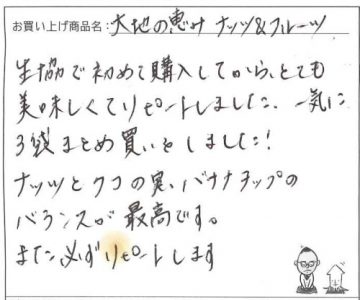 お買い上げ商品名: 大地の恵み ナッツ&フルーツ
生協で初めて購入してから、とても
美味しくてリピートしました、一気に
3袋まとめ買いをしました!
ナッツとクコの実、バナナチップの
バランスが最高です。
また、必ずリピートします